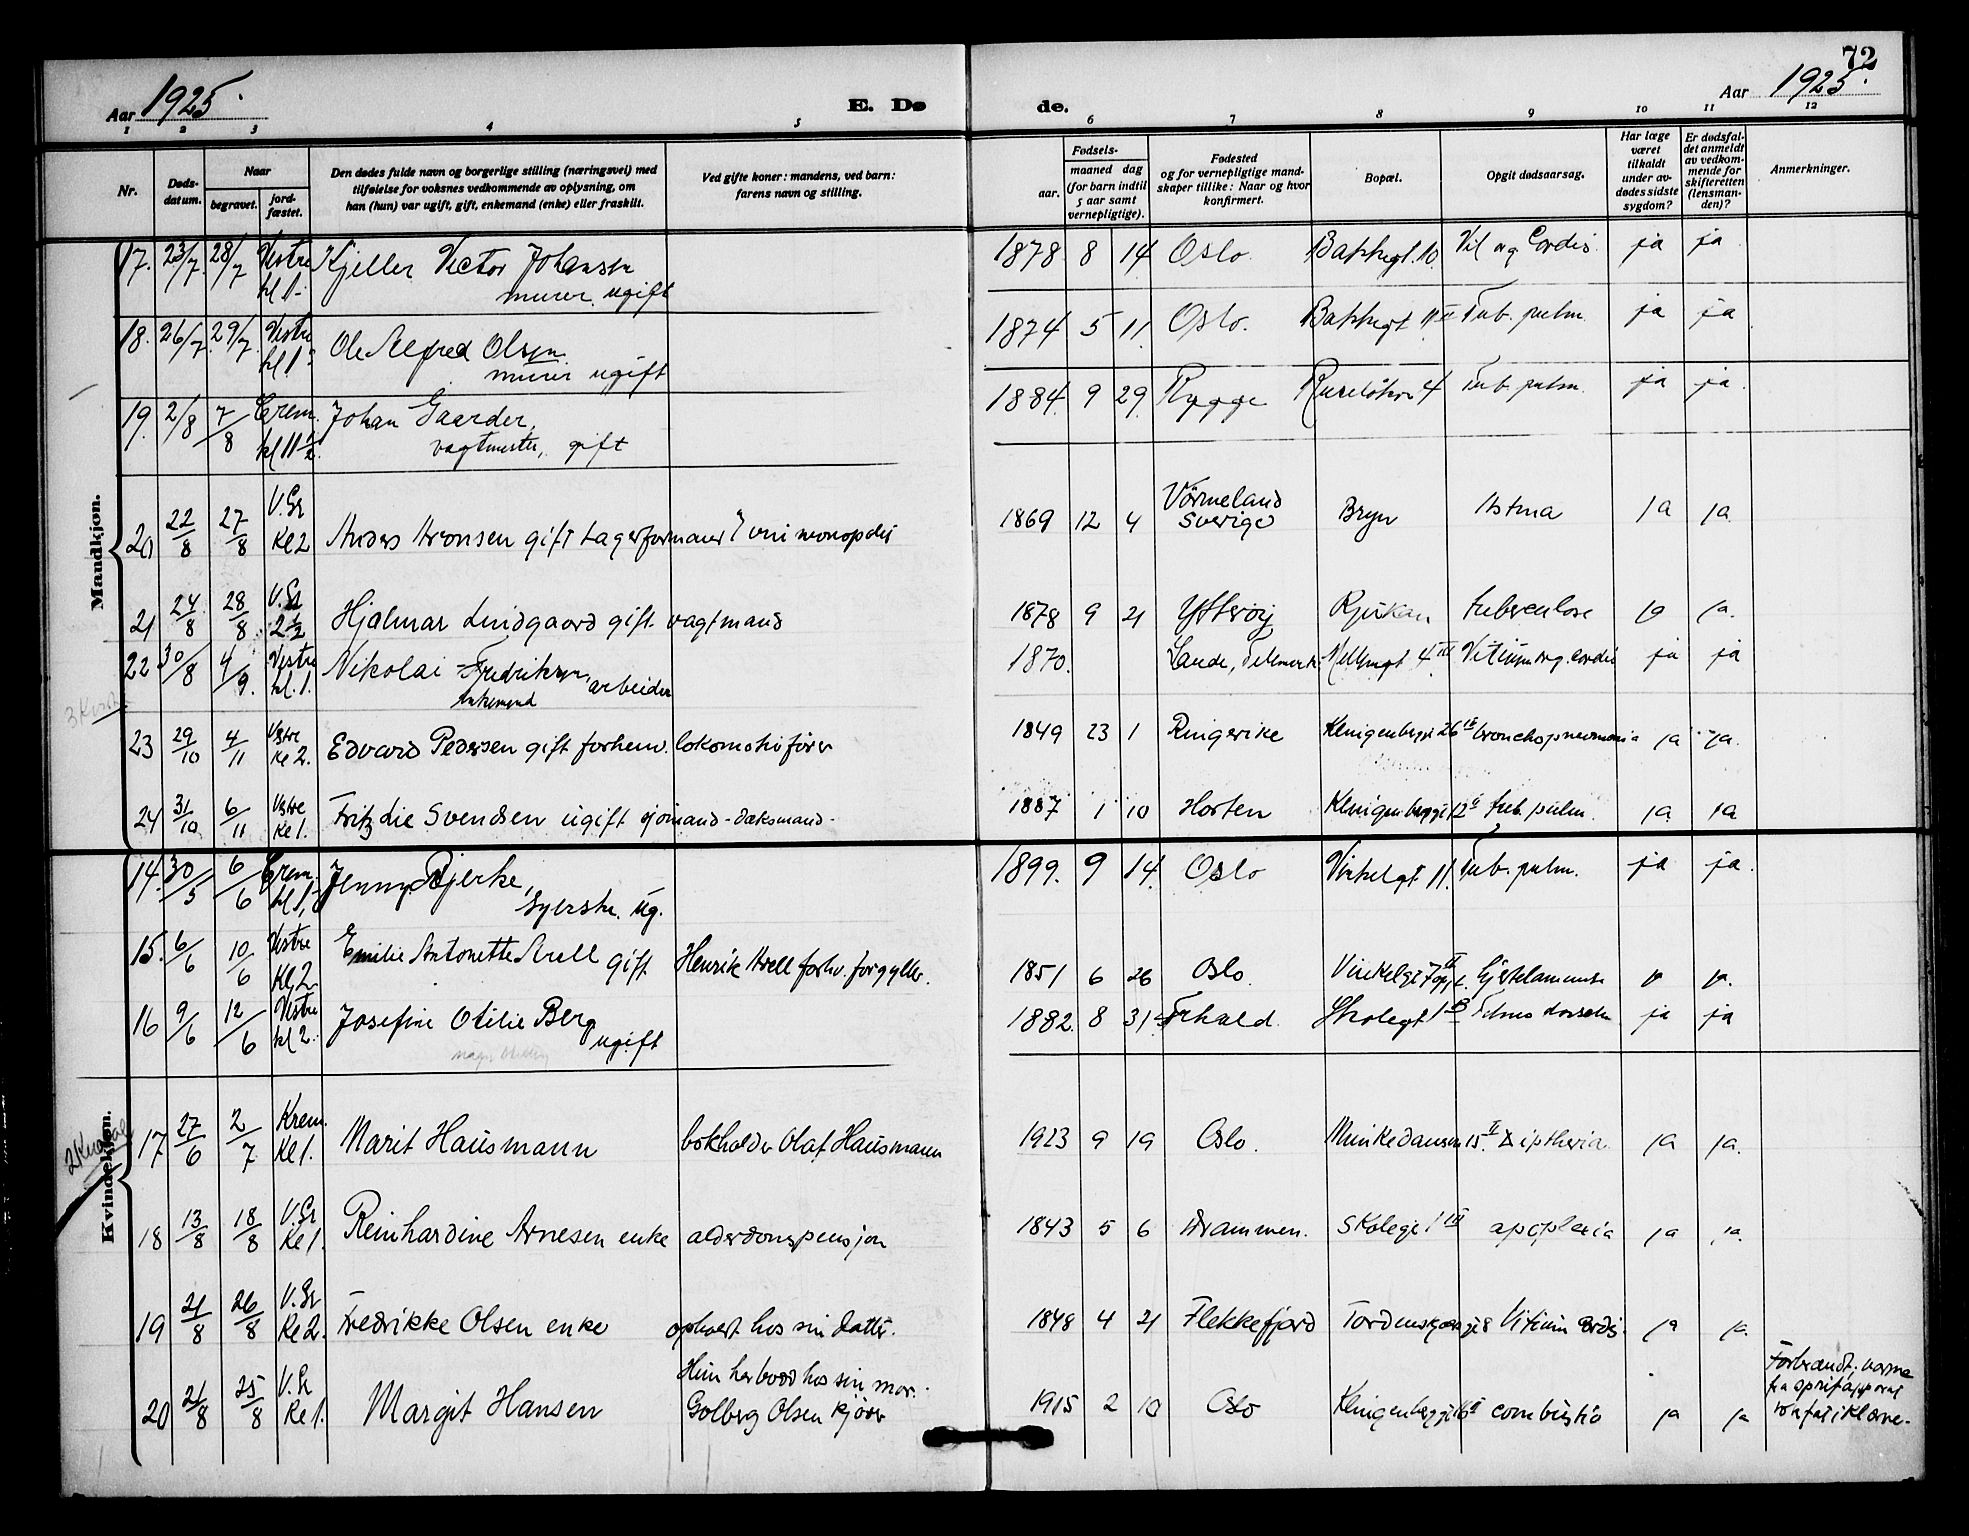 72
Aar 1925. E. Dø de. Aar 1925.
1 2 3 4 5 6 7 8 9 10 11 12
Nr.
Døds-
datum.
Naar
begravet.
jord-
fæstet.
Den dødes fulde navn og borgerlige stilling (næringsvei) med
tilføielse for voksnes vedkommende av oplysning, om
han (hun) var ugift, gift, enkemand (enke) eller fraskilt.
Ved gifte koner: mandens, ved barn:
farens navn og stilling.
Fødsels-
aar.
maaned dag
(for barn indtil
5 aar samt
vernepligtige).
Fødested
og for vernepligtige mand-
skaper tillike: Naar og hvor
konfirmert.
Bopæl.
Opgit dødsaarsag.
Har læge
været
tilkaldt
under av-
dødes sidste
sygdom?
Er dødsfal-
det anmeldt
av vedkom-
mende for
skifteretten
(lensman-
den)?
Anmerkninger.
Mandkjøn.
17. 23/7 28/7 Vestre kl 1 Kjeller Victor Johansen 1878 8 14 Oslo Bakkegt. 10 Vit org Cordis ja ja
murer. ugift
18. 26/7 29/7 Vestre kl 1 Ole Alfred Olsen 1874 5 11. Oslo. Bakkegt 11 Tub. pulm. ja ja
murer ugift
19. 2/8 7/8 Crem. kl 11 1/2 Johan Gaarder, 1884. 9 29. Rygge 4 Tub. pulm. ja ja.
vagtmester, gift
20 22/8 27/8 V. Gr Kl 2 Anders Aronsen gift Lagerformann i vinmonopolet 1869 12 4 Vörmeland Sverige Bryn Astma ja ja.
21 24/8 28/8 V. Gr 2 1/2 Hjalmar Lindgaard gift vagtmand 1878 9 21 Ytterøy Rjukan tuberculose ja ja.
22 30/8 4/9. Vestre kl. 1. Nikolai Fredriksen, arbeider 1870. Sande, Telemark. 4 III Vitium org. cordis ja ja
enkemand
23 29/10 4/11 Vstre Kl 2. Edvard Pedersen gift forhenv. lokomotivfører 1849 23 1 Ringerike Klingenberggt 26 bronchopneumonia ja ja.
24 31/10 6/11 Vstre Kl 1. Fritz Svendsen ugift sjømand - dæksmand - 1887 1 10 Horten Klingenberggt 12 tub. pulm. ja ja
Kvindekjøn.
14. 30/5 6/6 Crem. kl 1, Jenny Bjerke, 1899. 9 14. Oslo Vinkelgt 11. Tub. pulm. ja ja.
Syerske. ug.
15. 6/6 10/6 Vestre Kl 2 Emilie Antonette Arell gift Henrik Arell forhv. forgylder. 1851 6 26 Oslo. Vinkelgt 7 Hjertelammelse ja ja.
16 9/6 12/6 Vestre kl 2. Josefine Otilie Berg 1882. 8 31. Frhald. Skolegt 1 Tabes dorsalis ja ja
ugift
17 27/6 2/7 Krem. Kl 1. Marit Hausmann bokholder Olaf Hausmann 1923 9 19 Oslo. Munkedamsvn 15 II Diptheria ja ja.
18 13/8 18/8 V. Gr Kl 1. Reinhardine Arnesen enke alderdomspensjon 1843 5 6 Drammen. Skolegt 1 III apoplexia ja ja.
19 21/8 26/8 V. Gr Kl 2. Fredrikke Olsen enke ophold hos sin datter. 1848 4 21 Flekkefjord Tordenskjoldsgt 8 Vitium cordis. ja ja.
20 21/8 25/8 V. Gr Kl 1. Margit Hansen Hun har bodd hos sin mor. 1915 2 10 Oslo Klingenberggt 16 combustio ja ja Forbrændt; varme
Golberg Olsen kjører fra spritapparat
tok fat i klærne.